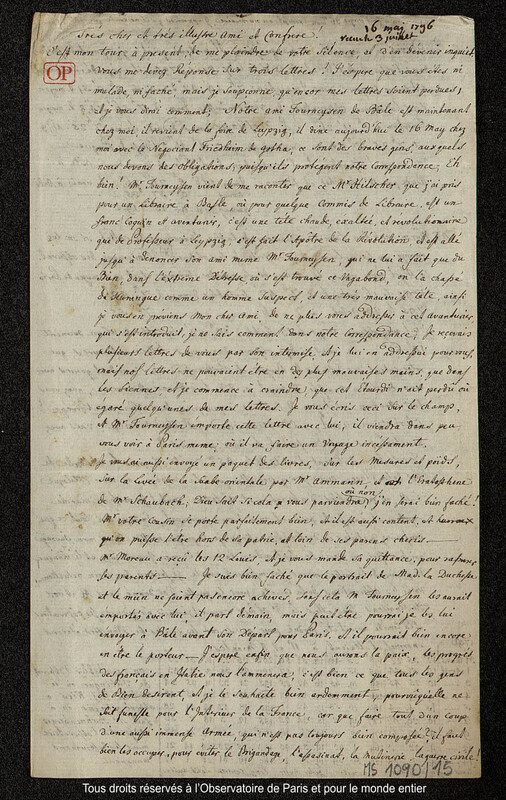 16 mai 1796
reçue le 3 juillet
Très cher et très illustre ami et Confrere.
C'est mon tour à present, de me plaindre de votre Silence, et d'en devenir inquiet
OP
vous me devez Réponse Sur trois lettres! J'espere que vous êtes ni
malade, ni faché, mais je soupçonne, qu'encor mes lettres soient perduës;
et je vous dirai comment; Nôtre ami Tourneysen de Bâle est maintenant
chez moi, il revient de la foire de Leipzig, il dine aujourd'hui le 16 May chez
moi avec le Négociant Friedheim de gotha, ce sont des braves gens, auxquels
nous devons des obligations, puisqu'ils protegent notre correspondance; Eh
bien! Mr. Tourneysen vient de me raconter que ce Mr. Hilscher, que j'ai pris
pour un Libraire à Basle, ni pour quelque Commis de Libraire, est un
franc Coquin et avanturier, c'est une tête chaude, exaltée, et revolutionnaire
qui de Professeur à Leypzig, s'est fait l'Apôtre de la Révolution, et est allé
jusqu'à denoncer son ami même Mr. Tourneysen, qui ne lui a fait que du
Bien, dans l'extrême Détresse, où s'est trouvé ce vagabond, on l'a chassé
de Hunningue comme un homme Suspect, et une très mauvaise tête, ainsi
je vous en previens Mon cher ami, de ne plus vous adresser à cet avanturier
qui s'est introduit, je ne sais comment dans notre correspondance; Je recevais
plusieurs lettres de vous par son intremise, et je lui en addressai pour vous,
mais nos lettres ne pouvaient être en des plus mauvaises mains, que dans
les Siennes et je commence à craindre, que cet Etourdi n'ait perdu ou
egaré quelqu'unes de mes lettres. Je vous écris ceci Sur le champ,
et Mr. Tourneysen emporte cette lettre avec lui, il viendra dans peu
vous voir à Paris même, où il va faire un Voyage incessament.
Je vous ai aussi envoyé un paquet des livres, Sur les Mesures et poids,
sur la Levée de la Suabe orientale par Mr. Ammann, et l'Eratosthene
de Mr. Schaubach; Dieu Sait Si cela vous parviendra ou non, j'en serai bien faché!
Mr. votre Cousin Se porte parfaitement bien, et il est aussi content, et heureux
qu'on puisse l'etre hors de sa patrie, et loin de ses parens cheris. —
Mr. Moreau a reçu les 12 Louis, et je vous mande sa quittance, pour rassurer
ses parents. — Je suis bien faché que le portrait de Mad. la Duchesse
et le mien ne soient pas encore achevés, Sans cela Mr Tourneysen les aurait
emportés avec lui, il part demain, mais peut être pourrai je les lui
envoyer à Bâle avant son Depart pour Paris. et il pourrait bien encore
en être le porteur — J'espere enfin que nous aurons la paix, les progrès
des français en Italie nous l'amenera, c'est bien ce que tous les gens
de Bien desirent et je le souhaite bien ardemment, pourvu qu'elle ne
Soit funeste pour l'Intérieur de la France, car que faire tout d'un coup
d'une aussi immense Armée, qui n'est pas toujours bien composée? il faut
bien les occuper, pour eviter le Brigandage, l'assassinat, la mutinerie, la guerre civile!
MS 1090/15
Tous droits réservés à l'Observatoire de Paris et pour le monde entier